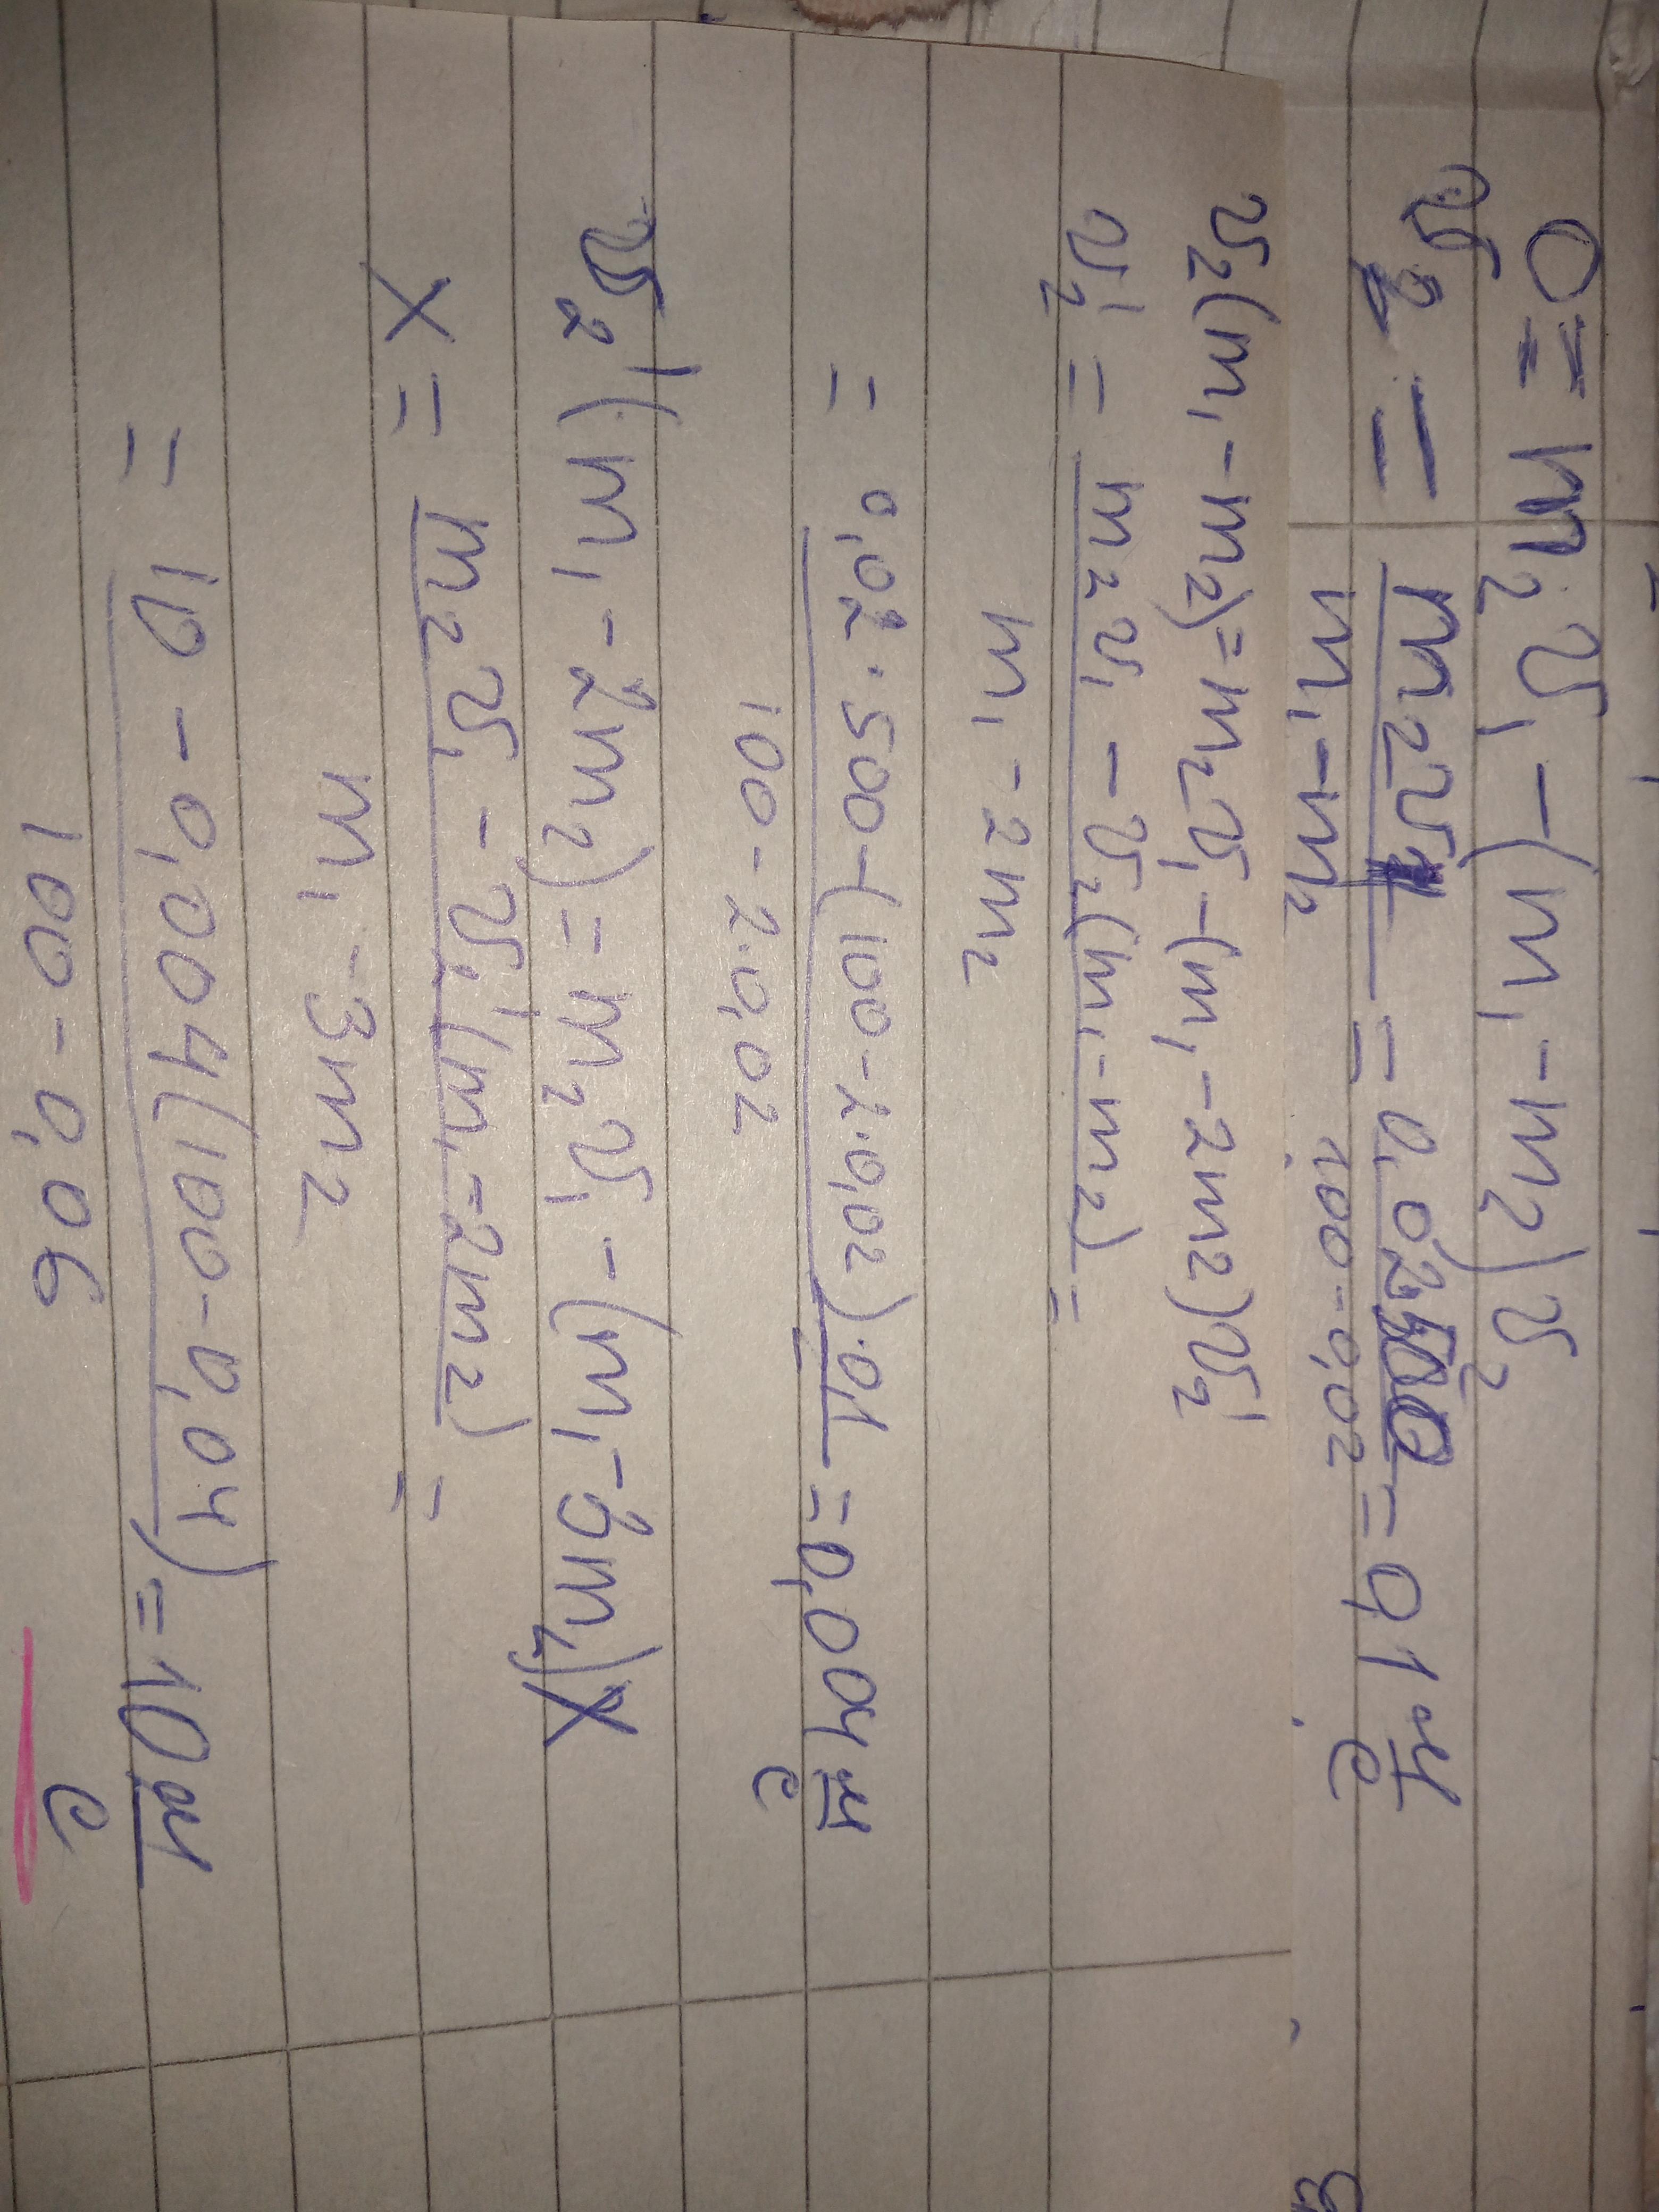 0 = m₂v₁ - (m₁ - m₂)v₂
v₂ = m₂v₁ / m₁ - m₂ = 0,02·500 / 100 - 0,02 = 0,1 м/с
v₂(m₁ - m₂) = m₂v₁ - (m₁ - 2m₂)v₂'
v₂' = m₂v₁ - v₂(m₁ - m₂) / m₁ - 2m₂ =
= 0,02·500 - (100 - 2·0,02)·0,1 / 100 - 2·0,02 = 0,004 м/с
v₂'(m₁ - 2m₂) = m₂v₁ - (m₁ - 3m₂)x
x = m₂v₁ - v₂'(m₁ - 2m₂) / m₁ - 3m₂ =
= 10 - 0,004(100 - 0,04) / 100 - 0,06 = 10 м/с